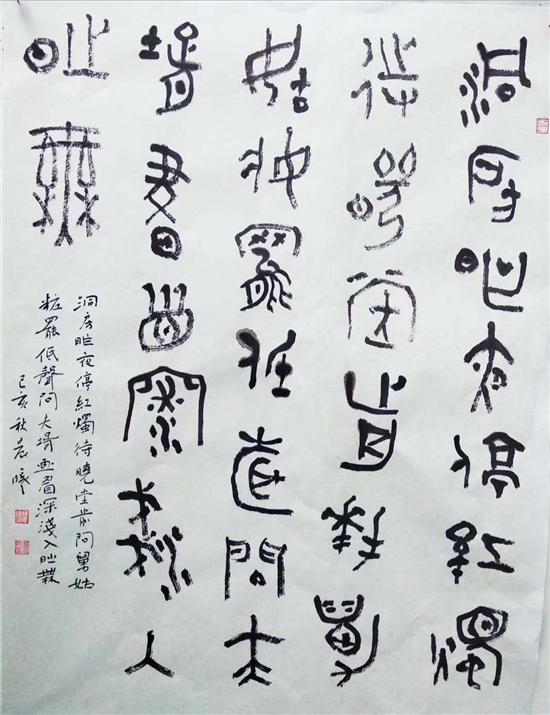 洞房昨夜停紅燭
待曉堂前拜舅
姑妝罷低聲問夫
壻畫眉深淺入
時無
洞房昨夜停紅燭待曉堂前問舅姑
粧罷低聲問夫壻畫眉深淺入時無
己亥秋